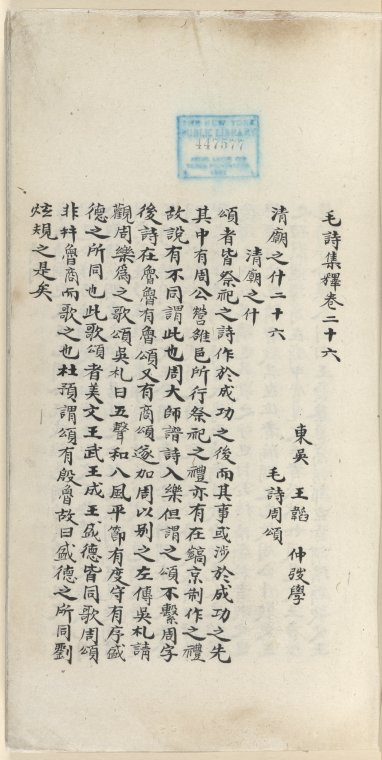 毛詩集釋卷二十六
東吳 王韜 仲弢學
清廟之什二十六 毛詩周頌
清廟之什
頌者皆祭祀之詩作於成功之後而其事或涉於成功之先
其中有周公營雒邑所行祭祀之禮亦有在鎬京制作之禮
故說有不同謂此也周大師譜詩入樂但謂之頌不繫周字
後詩在魯魯有魯頌又有商頌遂加周以別之左傳吳札請
觀周樂爲之歌頌吳札曰五聲和八風平節有度守有序盛
德之所同也此歌頌者美文王武王成王盛德皆同歌周頌
非幷魯商而歌之也杜預謂頌有殷魯故曰盛德之所同劉
炫規之是矣
447977